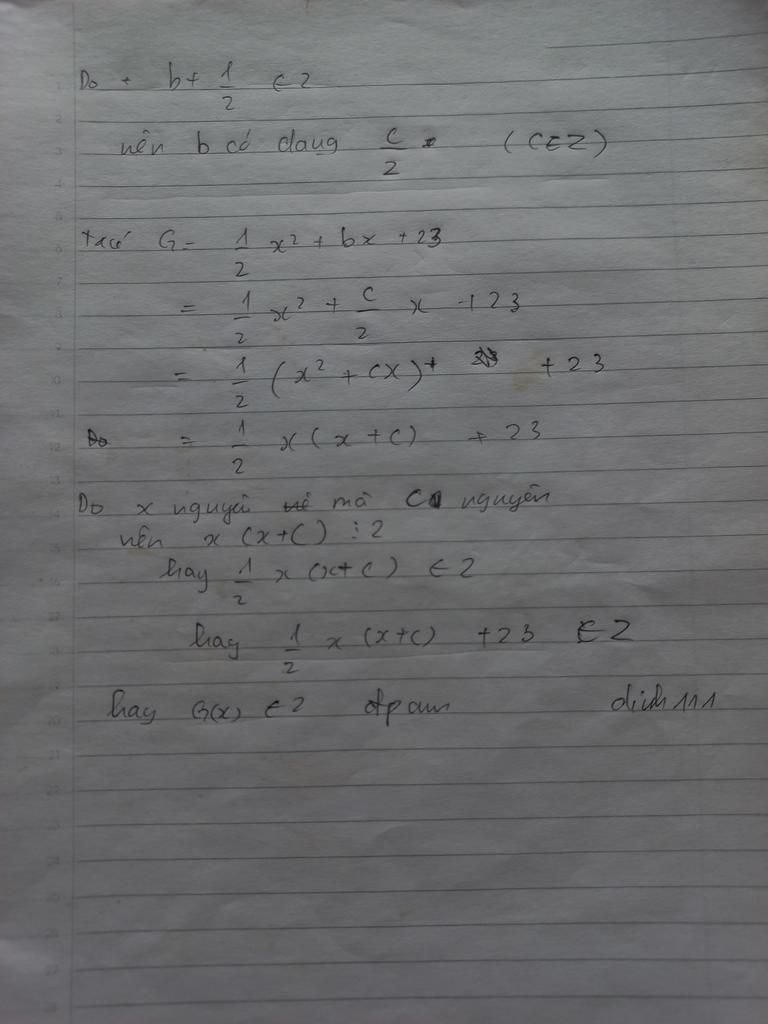 Do + b + 1/2 ∈ Z
nên b có dạng c/2 (C ∈ Z)
ta có G = 1/2 x² + bx + 23
= 1/2 x² + c/2 x + 23
= 1/2 (x² + cx) + + 23
= 1/2 x (x + c) + 23
Do x nguyên mà C nguyên
nên x (x + C) ⋮ 2
hay 1/2 x (x + c) ∈ Z
hay 1/2 x (x + c) + 23 ∈ Z
hay G(x) ∈ Z đpcm dinh 111